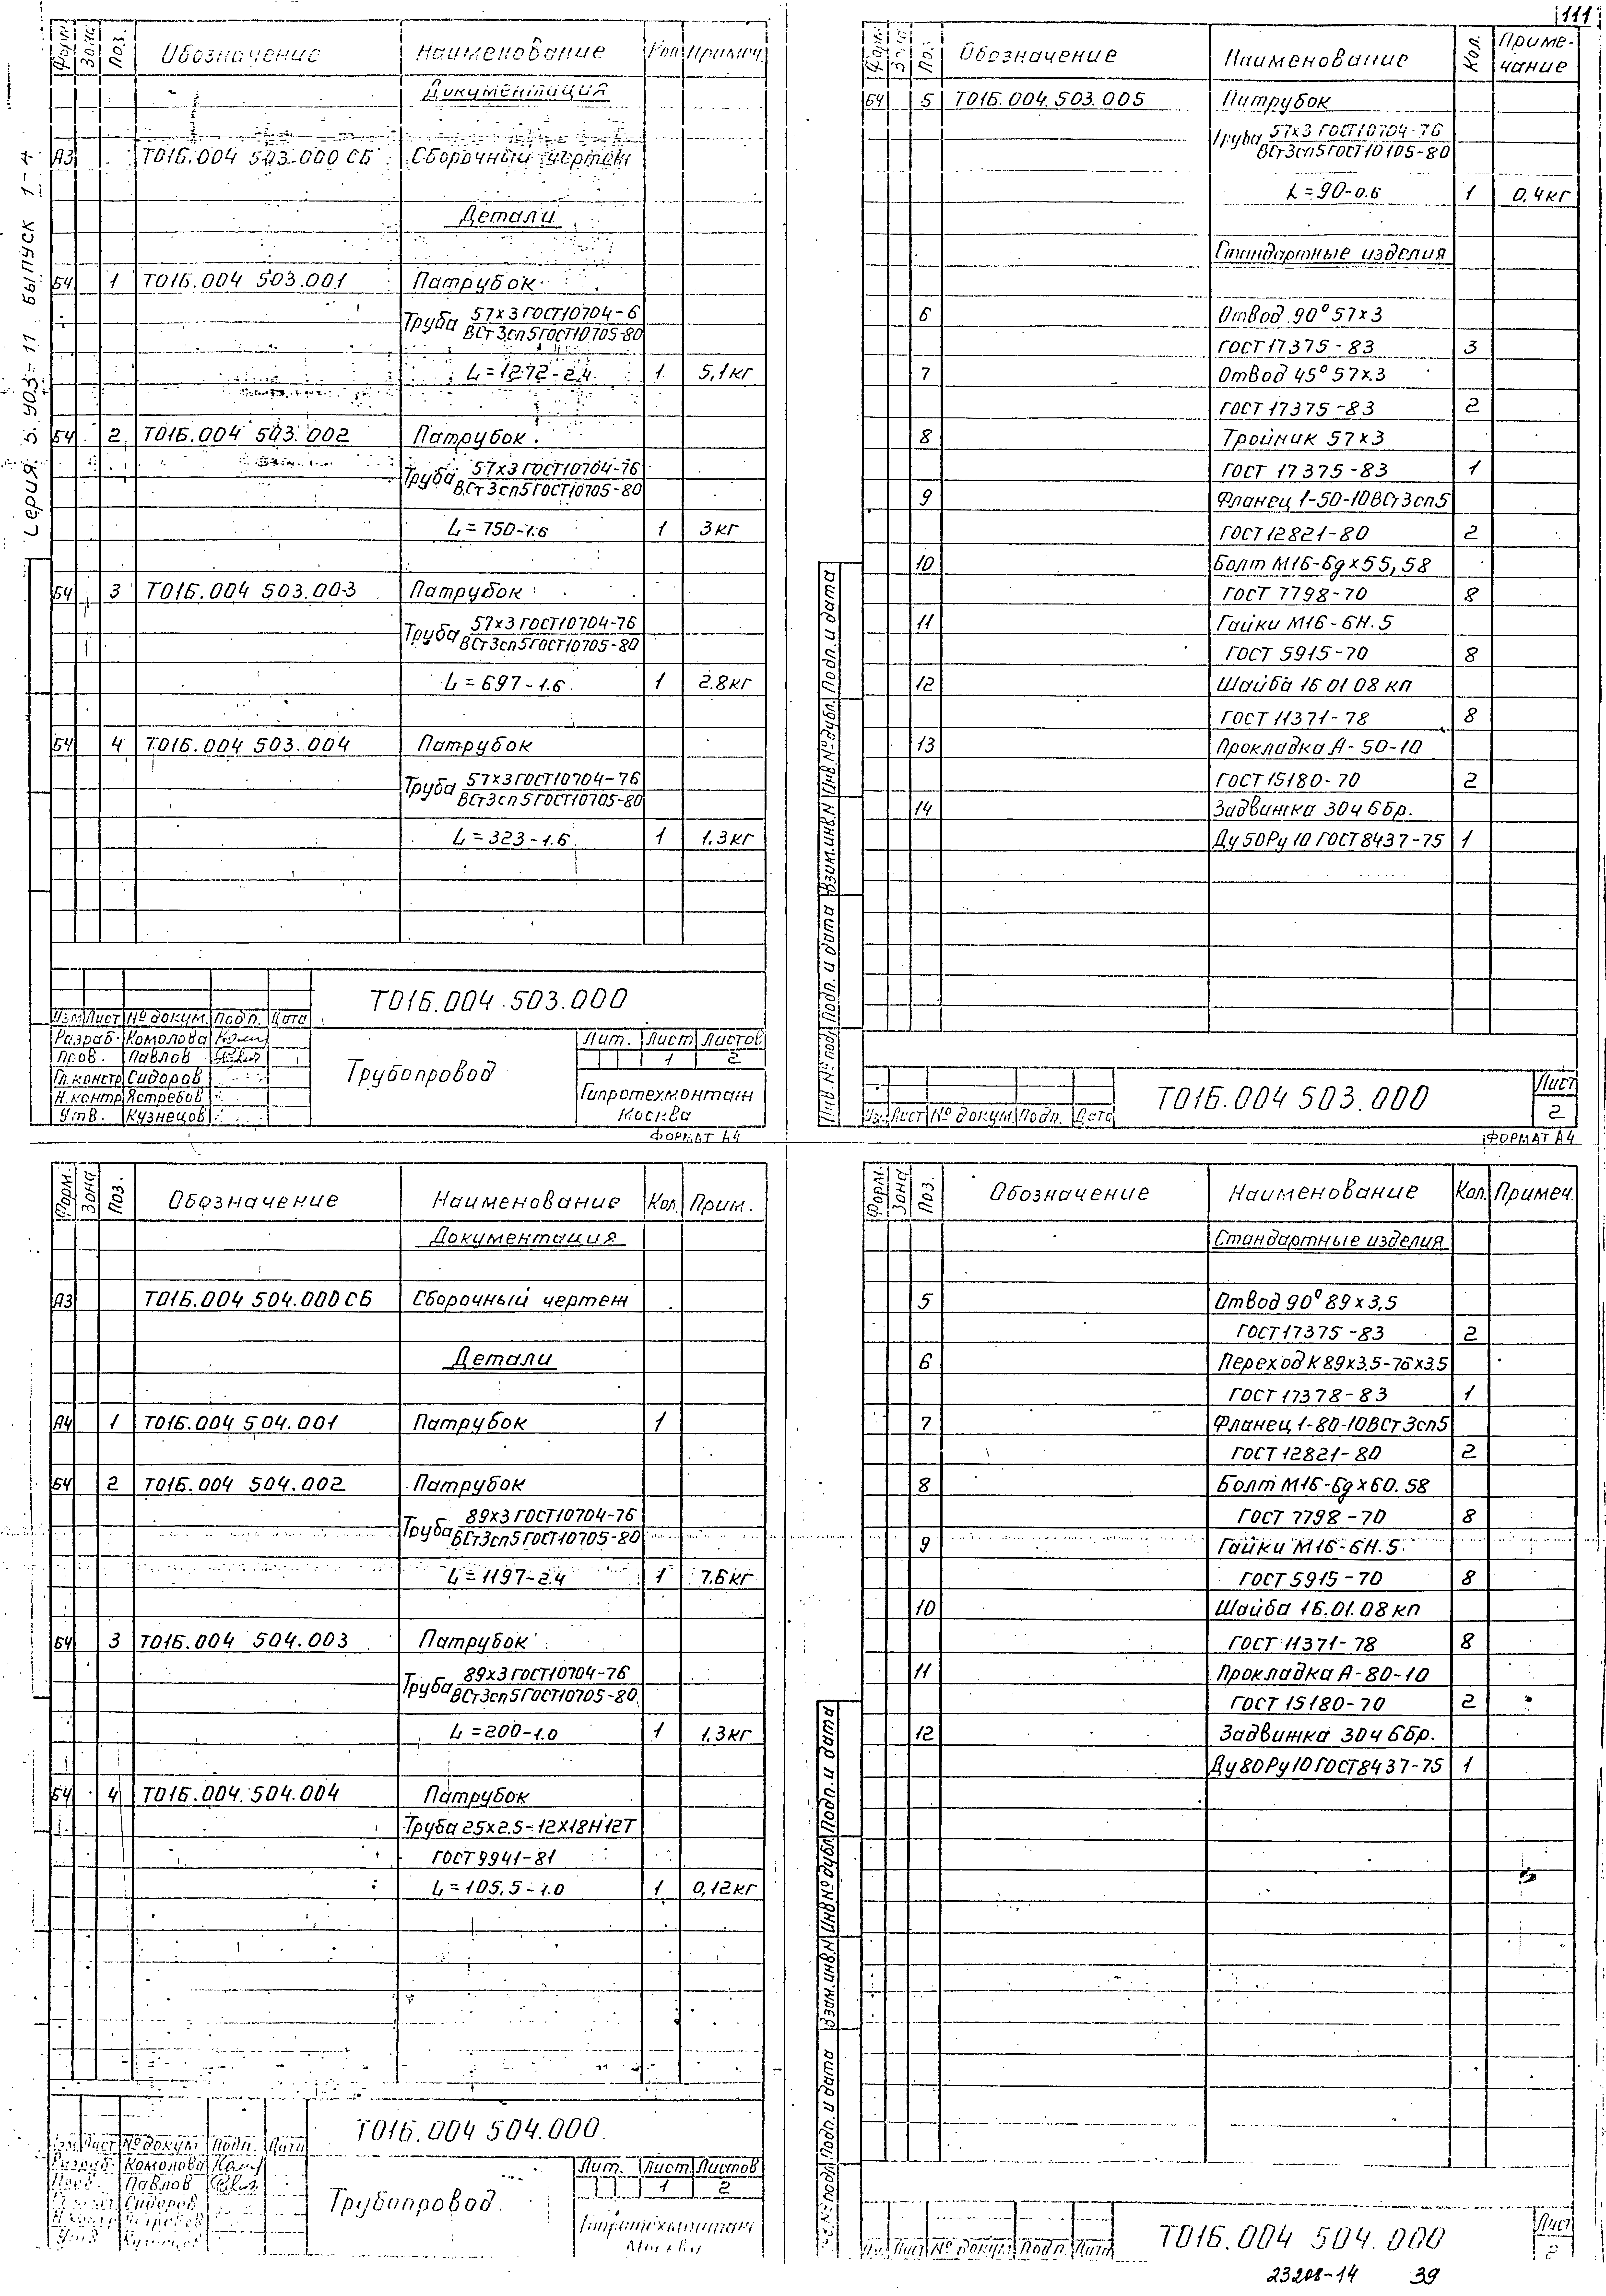 111
Серия 5.903-11 Выпуск 1-4
Форм. Зона Поз. Обозначение Наименование Кол. Примеч.
Документация
А3 Т01Б.004 503.000 СБ Сборочный чертеж
Детали
БЧ 1 Т01Б.004 503.001 Патрубок
Труба 57х3 ГОСТ10704-6
ВСт3сп5ГОСТ10705-80
L=1272-2.4 1 5,1кг
БЧ 2 Т01Б.004 503.002 Патрубок
Труба 57х3 ГОСТ10704-76
ВСт3сп5ГОСТ10705-80
L=750-1.6 1 3кг
БЧ 3 Т01Б.004 503.003 Патрубок
Труба 57х3 ГОСТ10704-76
ВСт3сп5ГОСТ10705-80
L=697-1.6 1 2.8кг
БЧ 4 Т01Б.004 503.004 Патрубок
Труба 57х3ГОСТ10704-76
ВСт3сп5ГОСТ10705-80
L=323-1.6 1 1.3кг
Т01Б.004.503.000
Изм Лист № докум. Подп. Дата
Разраб. Комолова
Пров. Павлов
Гл.констр Сидоров
Н.контр Ястребов
Утв. Кузнецов
Трубопровод
Лит. Лист Листов
1 2
Гипротехмонтаж
Москва
ФОРМАТ А4
Форм. Зона Поз. Обозначение Наименование Кол. Приме-
чание
БЧ 5 Т01Б.004.503.005 Патрубок
Труба 57х3 ГОСТ10704-76
ВСт3сп5ГОСТ10105-80
L=90-0.6 1 0,4кг
Стандартные изделия
6 Отвод 90° 57х3
ГОСТ 17375-83 3
7 Отвод 45° 57х3
ГОСТ 17375-83 2
8 Тройник 57х3
ГОСТ 17375-83 1
9 Фланец 1-50-10ВСт3сп5
ГОСТ12821-80 2
10 Болт М16-6gх55,58
ГОСТ 7798-70 8
11 Гайки М16-6Н.5
ГОСТ 5915-70 8
12 Шайба 16 01 08 кп
ГОСТ 11371-78 8
13 Прокладка А-50-10
ГОСТ15180-70 2
14 Задвижка 30ч 6бр.
Ду50Ру10 ГОСТ8437-75 1
Инв.№ подл Подп. и дата Взам.инв.N Инв.№дубл. Подп. и дата
Изм. Лист № докум. Подп. Дата
Т01Б.004 503.000
Лист
2
ФОРМАТ А4
Форм. Зона Поз. Обозначение Наименование Кол. Прим.
Документация
А3 Т01Б.004 504.000 СБ Сборочный чертеж
Детали
А4 1 Т01Б.004 504.001 Патрубок 1
БЧ 2 Т01Б.004 504.002 Патрубок
Труба 89х3 ГОСТ10704-76
ВСт3сп5ГОСТ10705-80
L=1197-2.4 1 7.6кг
БЧ 3 Т01Б.004 504.003 Патрубок
Труба 89х3 ГОСТ10704-76
ВСт3сп5ГОСТ10705-80
L=200-1.0 1 1.3кг
БЧ 4 Т01Б.004.504.004 Патрубок
Труба 25х2.5-12Х18Н12Т
ГОСТ9941-81
L=105.5-1.0 1 0,12кг
Т01Б.004 504.000
Изм Лист № докум Подп. Дата
Разраб. Комолова
Пров. Павлов
Сидоров
Н.контр Ястребов
Утв Кузнецов
Трубопровод
Лит. Лист Листов
1 2
Гипротехмонтаж
Москва
Форм. Зона Поз. Обозначение Наименование Кол. Примеч.
Стандартные изделия
5 Отвод 90° 89х3,5
ГОСТ17375-83 2
6 Переход К89х3.5-76х3.5
ГОСТ 17378-83 1
7 Фланец 1-80-10ВСт3сп5
ГОСТ12821-80 2
8 Болт М16-6gх60.58
ГОСТ 7798-70 8
9 Гайки М16-6Н.5
ГОСТ5915-70 8
10 Шайба 16.01.08 кп
ГОСТ 11371-78 8
11 Прокладка А-80-10
ГОСТ 15180-70 2
12 Задвижка 30ч 6бр.
Ду80Ру10ГОСТ8437-75 1
Инв.№ подл Подп. и дата Взам.инв.N Инв.№дубл Подп. и дата
Изм. Лист № докум Подп. Дата
Т01Б.004 504.000
Лист
2
23208-14 39